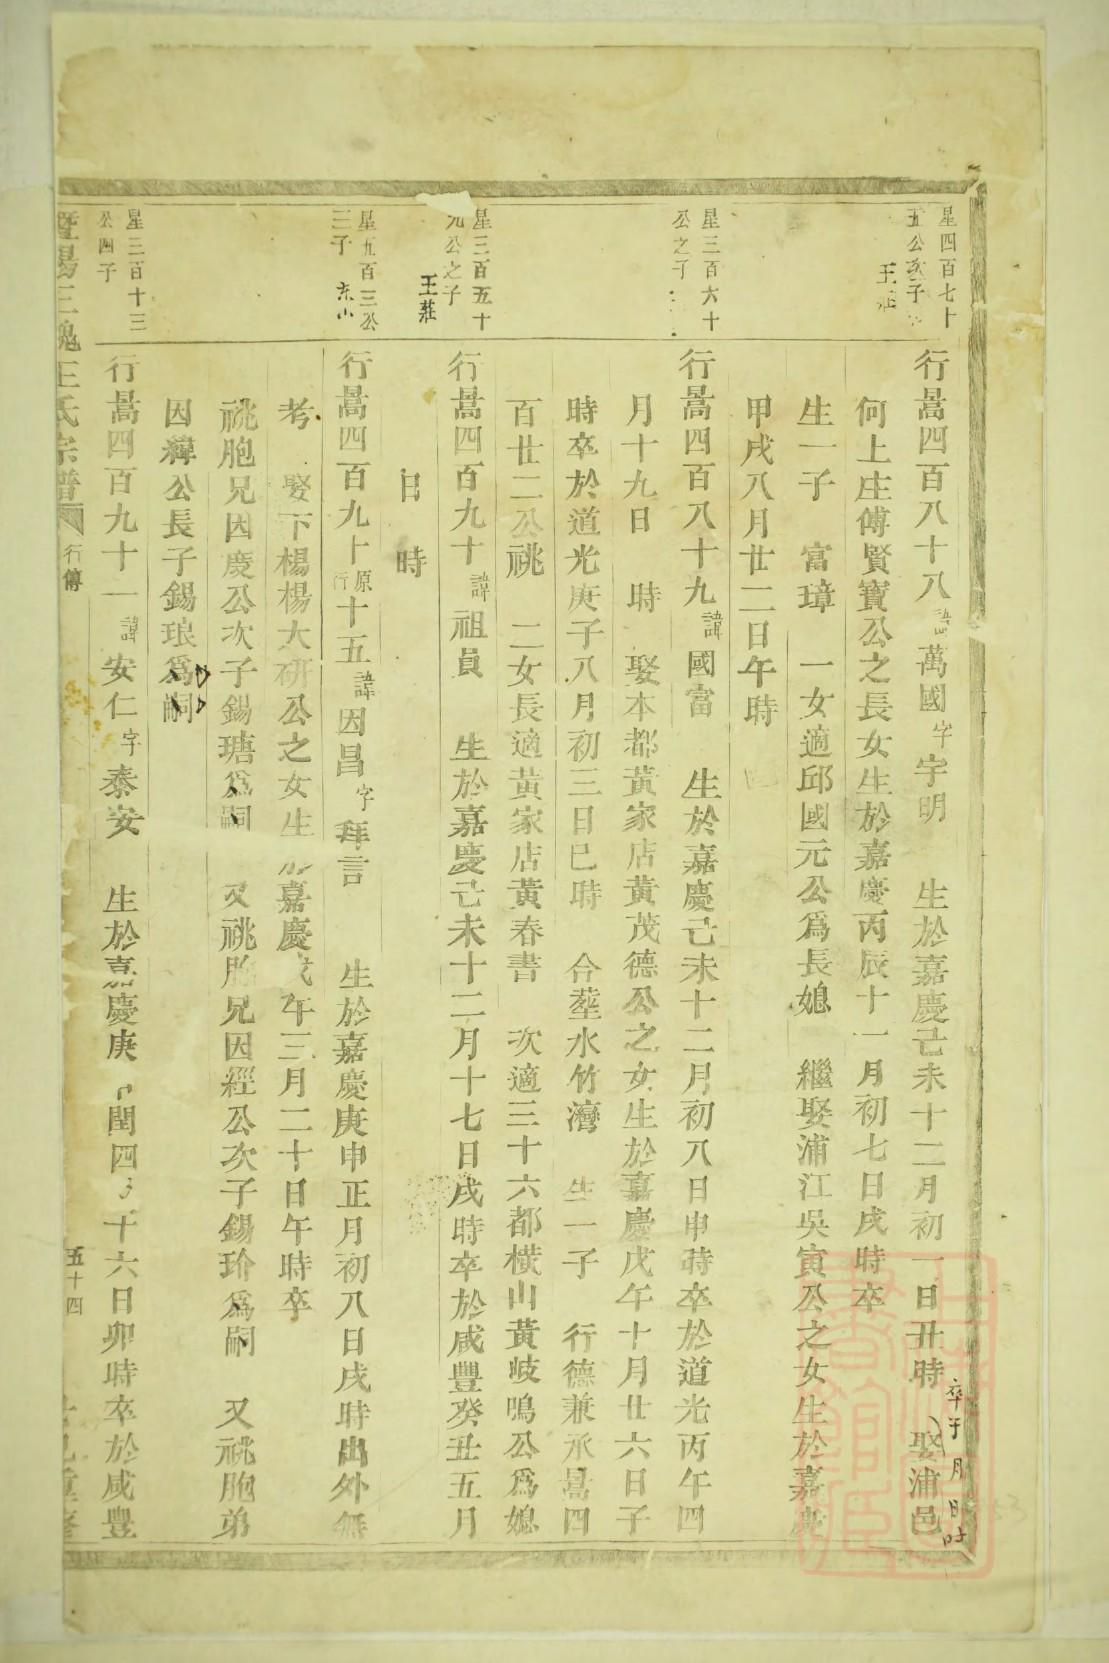 星四百七十
五公次子
王莊
行暠四百八十八諱萬國字宇明 生於嘉慶己未十二月初一日丑時 娶浦邑
卒于 月 日時
何上庄傅賢寶公之長女生於嘉慶丙辰十一月初七日戌時卒
生一子 富璋 一女適邱國元公爲長媳 繼娶浦江吳寅公之女生於嘉慶
甲戌八月廿二日午時
星三百六十
公之子
行暠四百八十九諱國富 生於嘉慶己未十二月初八日申時卒於道光丙午四
月十九日 時 娶本都黃家店黃茂德公之女生於嘉慶戊午十月廿六日子
時卒於道光庚子八月初三日巳時 合塟水竹灣 生一子 行德兼承暠四
百廿二公祧 二女長適黃家店黃春書 次適三十六都橫山黃岐鳴公爲媳
星三百五十
九公之子
王莊
行暠四百九十諱祖貞 生於嘉慶己未十二月十七日戌時卒於咸豐癸丑五月
日 時
星五百三公
三子
东山
行暠四百九十原行十五諱因昌字拜言 生於嘉慶庚申正月初八日戌時出外無
考 娶下楊楊大研公之女生於嘉慶戊午三月二十日午時卒
祧胞兄因慶公次子錫瑭爲嗣 又祧胞兄因經公次子錫玠爲嗣 又祧胞弟
因緯公長子錫琅爲嗣
星三百十三
公四子
行暠四百九十一諱安仁字泰安 生於嘉慶庚 閏四 十六日卯時卒於咸豐
暨陽三槐王氏宗譜 行傳 五十四 己重修